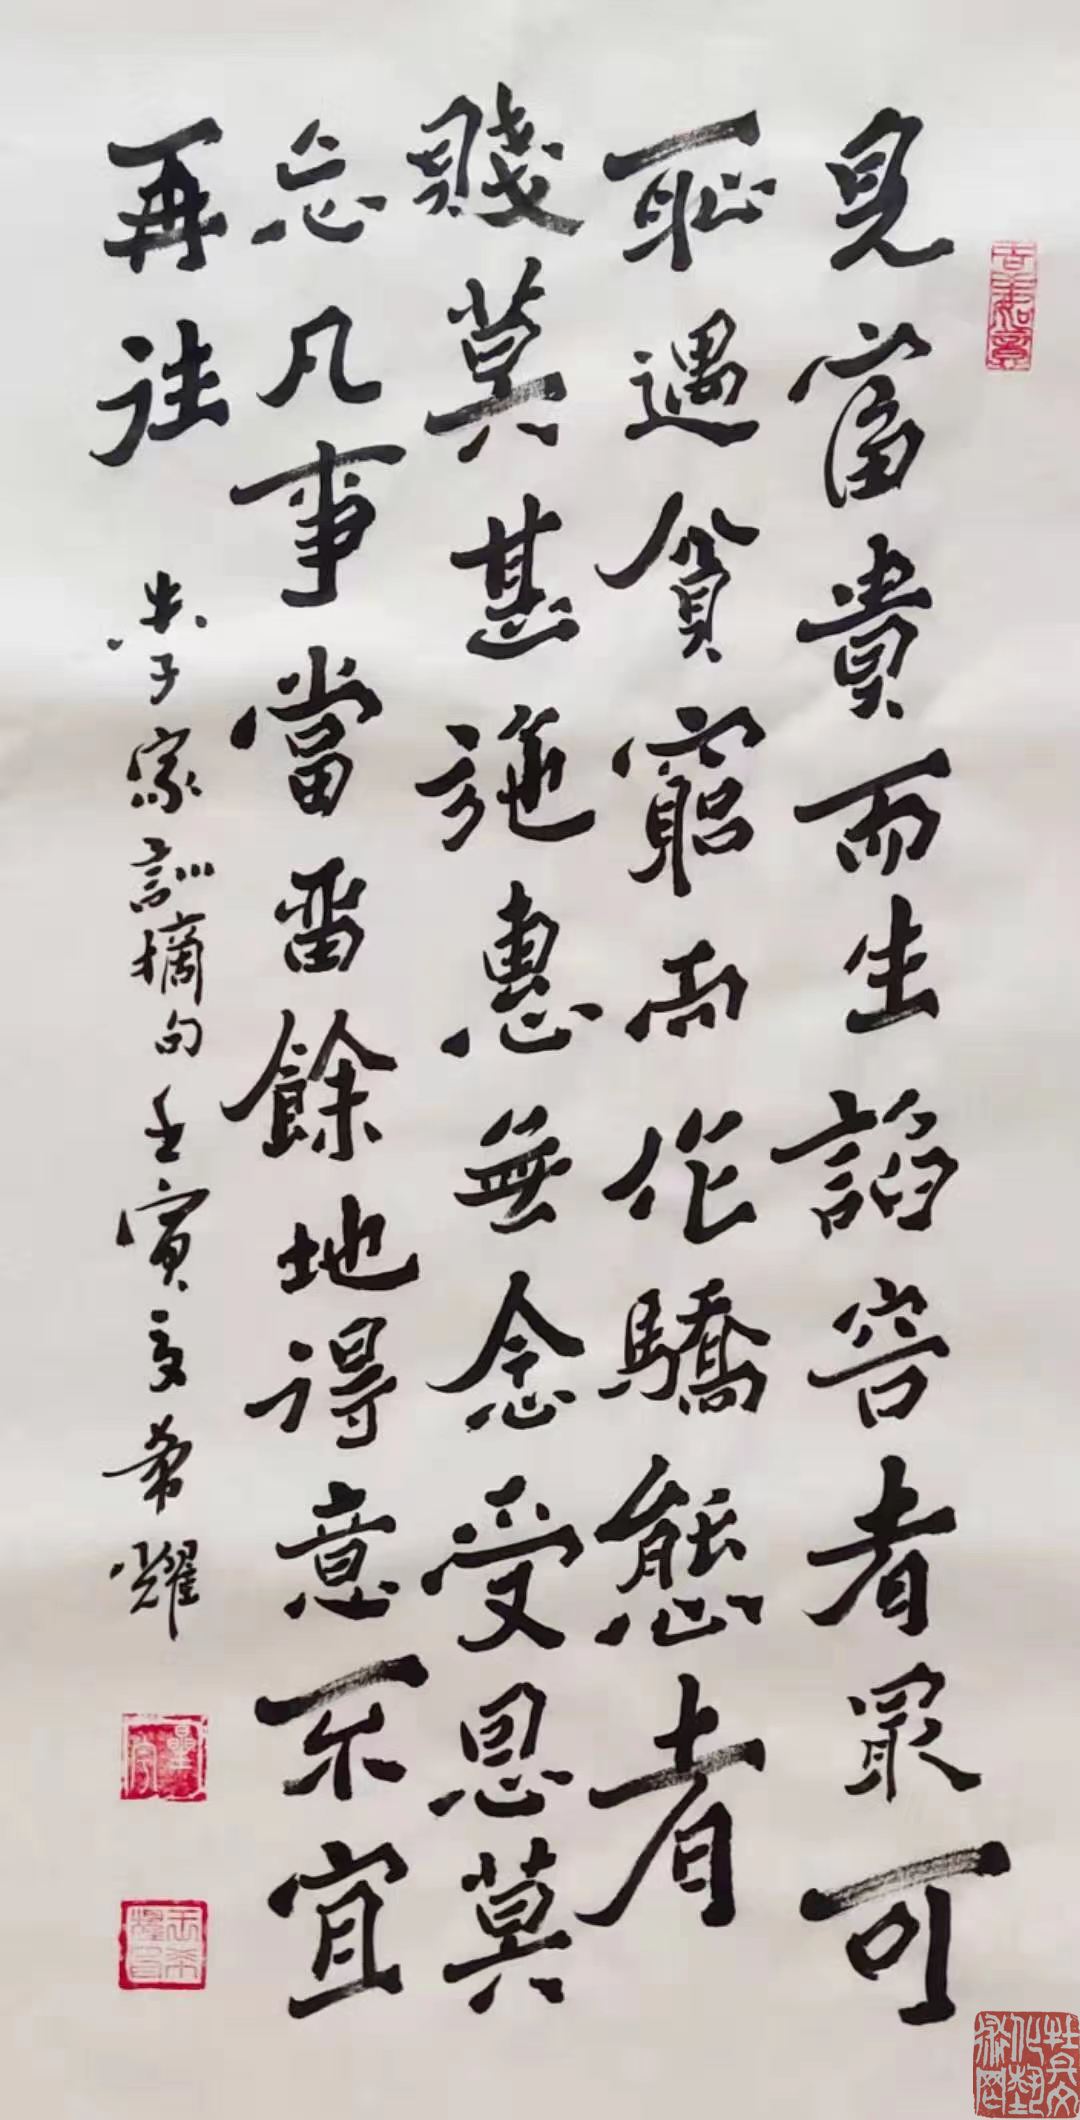 見富貴而生諂容者最可
恥遇貧窮而作驕態者
賤莫甚施惠無念受恩莫
忘凡事當畱餘地得意不宜
再往
朱子家訓摘句壬寅夏希耀
吉祥如意